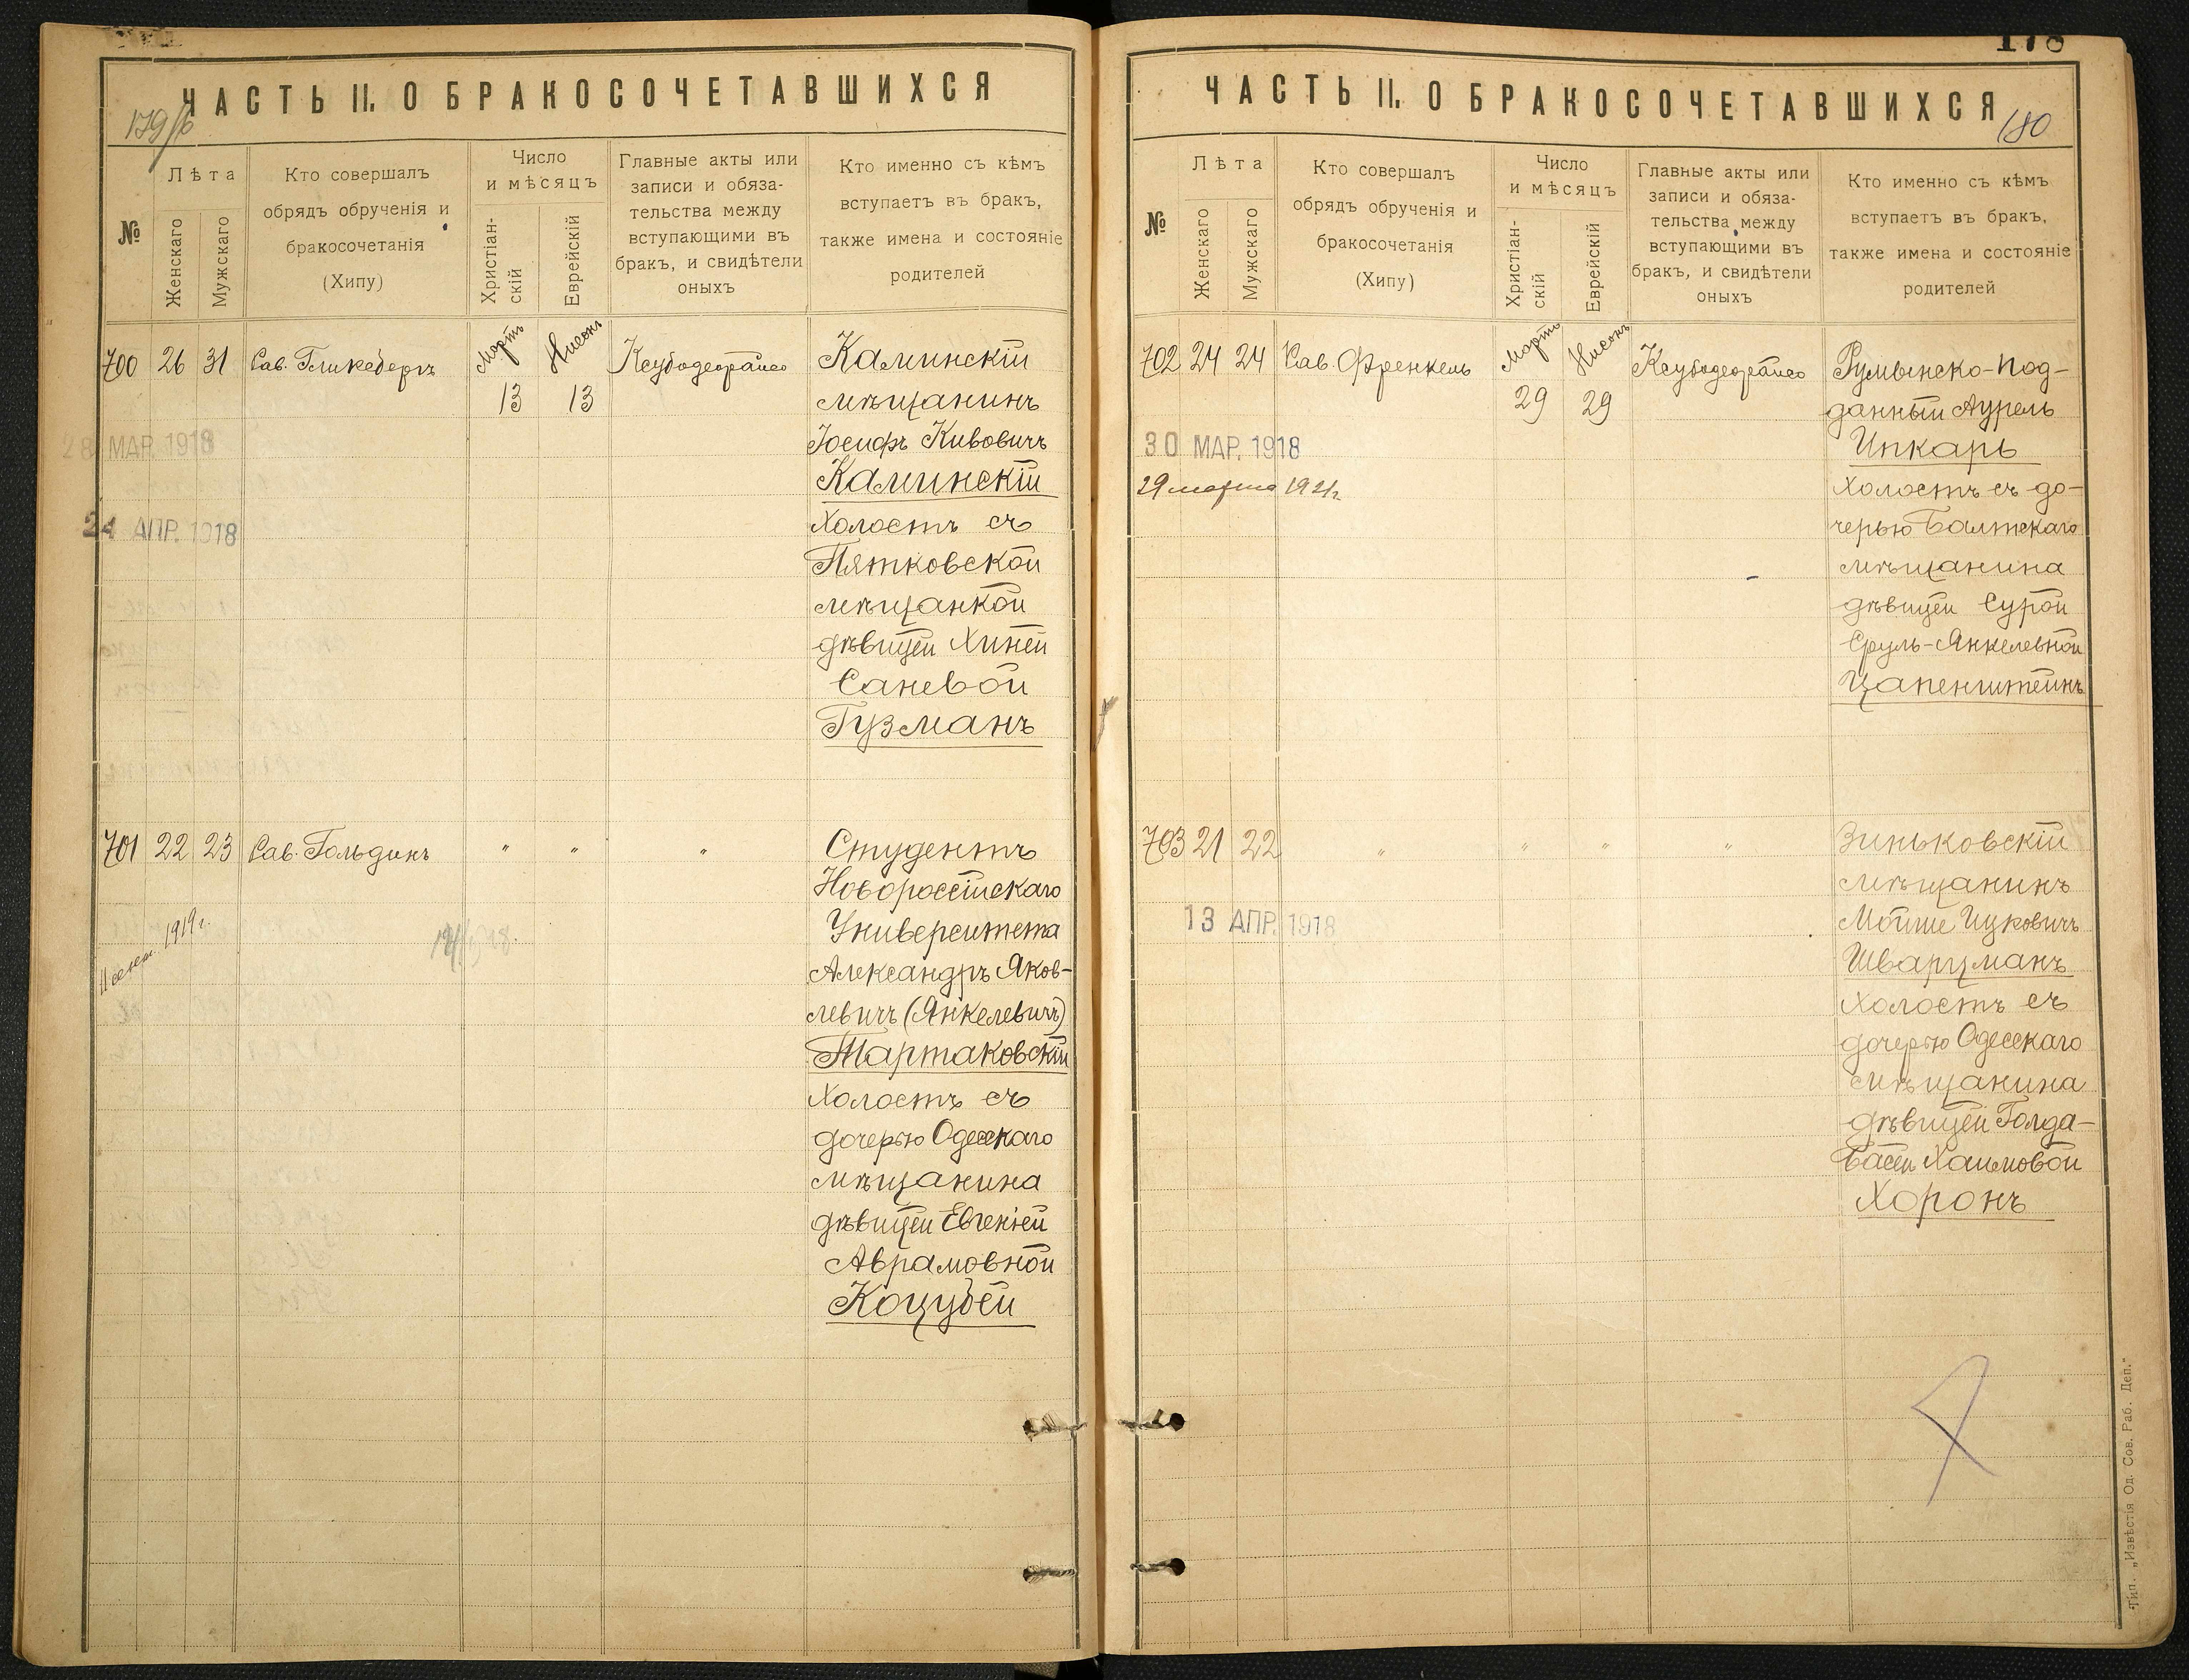 ЧАСТЬ II. О БРАКОСОЧЕТАВШИХСЯ
179/б
№
Лѣта
Женскаго
Мужскаго
Кто совершалъ
обрядъ обрученія и
бракосочетанія
(Хипу)
Число
и мѣсяцъ
Христіан-
скій
Еврейскій
Главные акты или
записи и обяза-
тельства между
вступающими въ
бракъ, и свидѣтели
оныхъ
Кто именно съ кѣмъ
вступаетъ въ бракъ,
также имена и состояніе
родителей
700 26 31 Рав. Гликсбергъ Мартъ 13 Нисонъ 13 Ксубодеорайсо
Каминскій
мѣщанинъ
Іосифъ Кивовичъ
Каминскій
холостъ съ
Пятковской
мѣщанкой
дѣвицей Хиней
Саневой
Гузманъ
28 МАР. 1918
24 АПР. 1918
701 22 23 Рав. Гольдинъ " " "
Студентъ
Новороссійскаго
Университета
Александръ Яков-
левичъ (Янкелевичъ)
Тартаковскій
холостъ съ
дочерью Одесскаго
мѣщанина
дѣвицей Евгеніей
Аврамовной
Коцубей
1919 г.
178
ЧАСТЬ II. О БРАКОСОЧЕТАВШИХСЯ
180
№
Лѣта
Женскаго
Мужскаго
Кто совершалъ
обрядъ обрученія и
бракосочетанія
(Хипу)
Число
и мѣсяцъ
Христіан-
скій
Еврейскій
Главные акты или
записи и обяза-
тельства между
вступающими въ
бракъ, и свидѣтели
оныхъ
Кто именно съ кѣмъ
вступаетъ въ бракъ,
также имена и состояніе
родителей
702 24 24 Рав. Френкель Мартъ 29 Нисонъ 29 Ксубодеорайсо
Румынско-под-
данный Аурель
Ипкаръ
холостъ съ до-
черью Балтскаго
мѣщанина
дѣвицей Сурой
Сруль-Янкелевной
Цапенштейнъ
30 МАР. 1918
29 марта 1921 г.
703 21 22 " " " "
Зиньковскій
мѣщанинъ
Мойше Ицковичъ
Шварцманъ
холостъ съ
дочерью Одесскаго
мѣщанина
дѣвицей Голда-
Басей Хаимовой
Хоронъ
13 АПР. 1918
Тип. „Извѣстія Од. Сов. Раб. Деп."